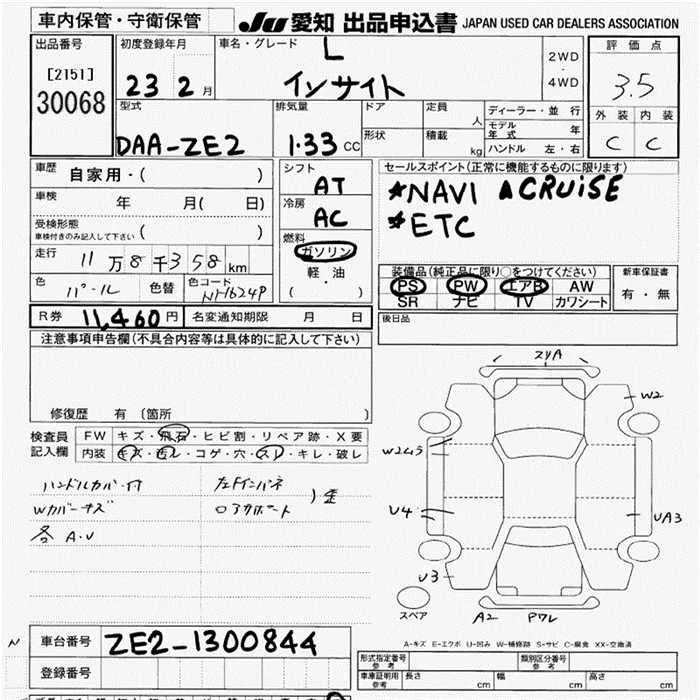 車内保管・守衛保管
JU 愛知 出品申込書 JAPAN USED CAR DEALERS ASSOCIATION
出品番号
[2151]
30068
初度登録年月
23 2 月
車名・グレード L
インサイト
2WD
・
4WD
評価点
3.5
外装 内装
C C
型式
DAA-ZE2
排気量
1.33 CC
ドア
形状
定員 人
積載 kg
ディーラー・並行
モデル年式 年
ハンドル 左・右
車歴 自家用・( )
車検 年 月( 日)
受検形態
車検付きのみ記入して下さい ( )
走行 11万8千358km
色 パール 色替 色コード NH624P
シフト
AT
冷房
AC
燃料
ガソリン
軽・油
( ・ )
セールスポイント(正常に機能するものに限ります)
*NAVI *CRUISE
*ETC
装備品(純正品に限り○をつけてください)
PS PW エアB AW
SR ナビ TV カワシート
新車保証書
有・無
R券 11,460円 名変通知期限 月 日
後日品
注意事項申告欄(不具合内容等は具体的に記入して下さい)
修復歴 有 〔箇所 〕
検査員
記入欄
FW キズ・飛石・ヒビ割・リペア跡・X要
内装 キズ・汚レ・コゲ・穴・スレ・キレ・破レ
ハンドルカバー付
Wカバーキズ
各A.U
左Fインパネ
ロアカバート
ZYA
W2
W2ムラ
U4
UA3
U3
A2 Pワレ
スペア
A-キズ E-エクボ U-凹み W-補修跡 S-サビ C-腐食 XX-交換済
N
車台番号 ZE2-1300844
登録番号
形式指定番号
参考
類別区分番号
参考
車庫証明用
参考
長さ cm 幅 cm 高さ cm